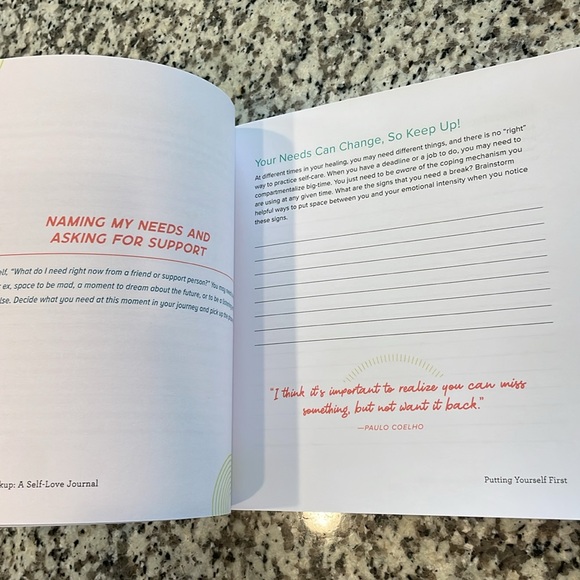 NAMING MY NEEDS AND
ASKING FOR SUPPORT
elf, "What do I need right now from a friend or support person?" You may
ex, space to be mad, a moment to dream about the future, or to be a
lse. Decide what you need at this moment in your journey and pick up the
kup: A Self-Love Journal
Your Needs Can Change, So Keep Up!
At different times in your healing, you may need different things, and there is no "right"
way to practice self-care. When you have a deadline or a job to do, you may need to
compartmentalize big-time. You just need to be aware of the coping mechanism you
are using at any given time. What are the signs that you need a break? Brainstorm
helpful ways to put space between you and your emotional intensity when you notice
these signs.
"I think it's important to realize you can miss
something, but not want it back."
—PAULO COELHO
Putting Yourself First